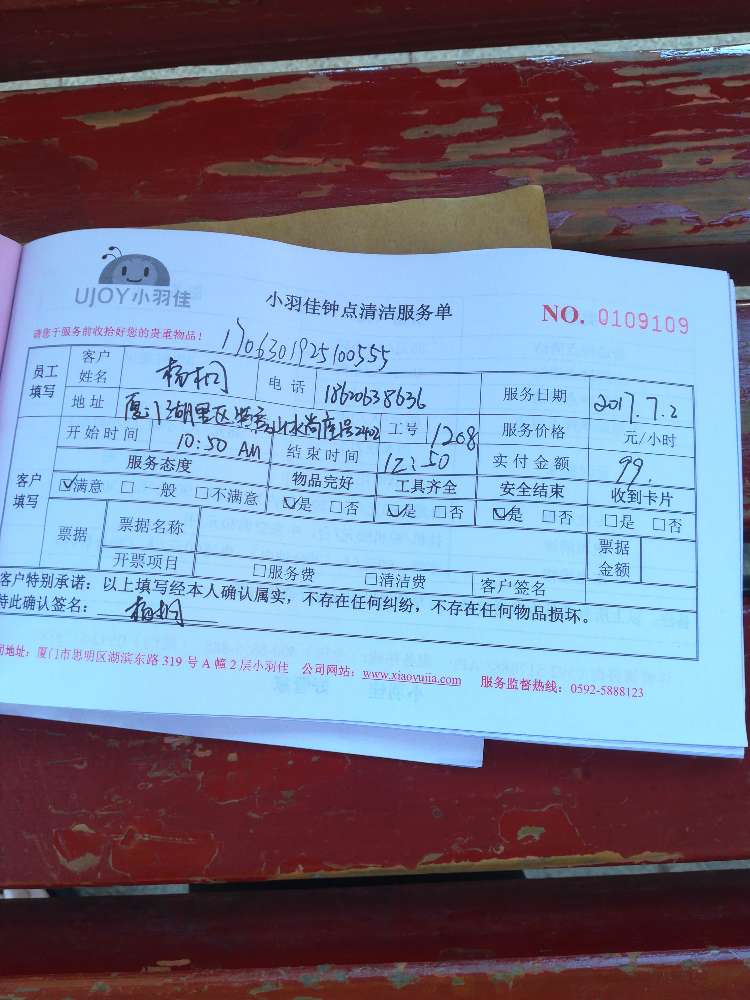 UJOY小羽佳
小羽佳钟点清洁服务单
NO. 0109109
请您于服务前收拾好您的贵重物品！
1706301925100555
员工填写 客户姓名 杨桐 电话 18620638636 服务日期 2017.7.2
地址 厦门湖里区 山水尚座 号2402 工号 1208 服务价格 元/小时
开始时间 10:50 AM 结束时间 12:50 实付金额 99.
客户填写 服务态度 物品完好 工具齐全 安全结束 收到卡片
☑满意 □一般 □不满意 ☑是 □否 ☑是 □否 ☑是 □否 □是 □否
票据 票据名称 票据金额
开票项目 □服务费 □清洁费 客户签名
客户特别承诺：以上填写经本人确认属实，不存在任何纠纷，不存在任何物品损坏。
特此确认签名： 杨桐
司地址：厦门市思明区湖滨东路 319 号 A 幢 2 层小羽佳 公司网站：www.xiaoyujia.com 服务监督热线：0592-5888123